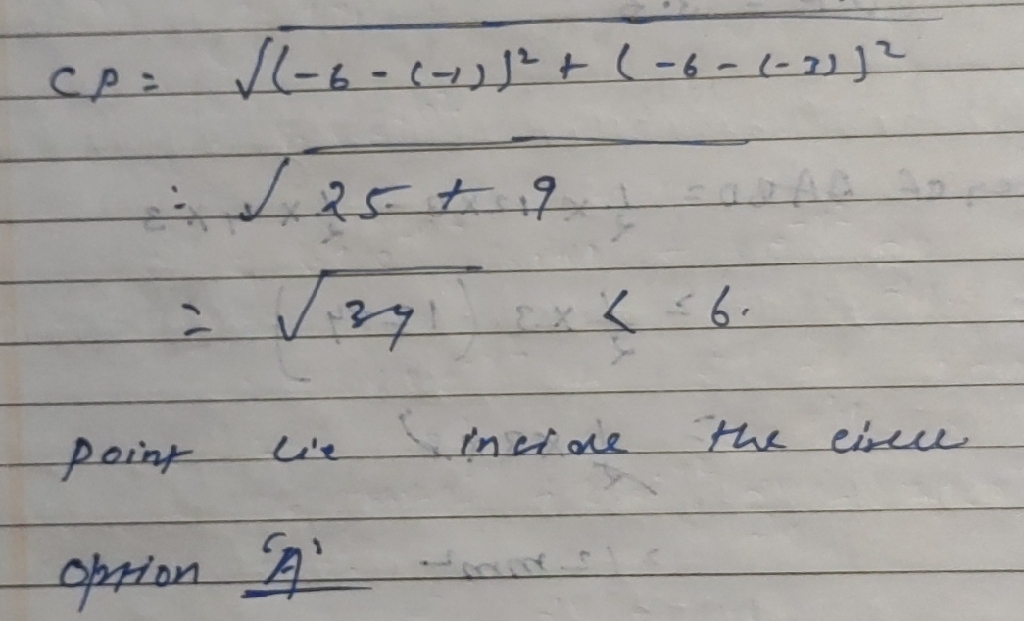 CP = √(-6-(-1))² + (-6-(-3))²
= √25 + 9
= √34 < 6.
point lie inside the circle
option 'A'